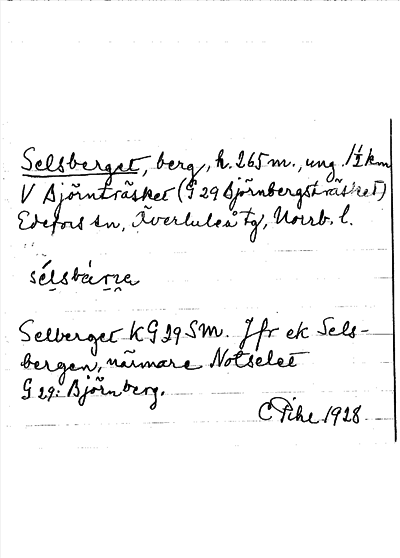 Selsberget, berg, h. 265 m., ung. 1½ km
V Björnträsket (G 29 Björnbergsträsket)
Edefors sn, Överluleå tg, Norrb. l.
Selberget K G 29 SM. Jfr ek Sels-
bergen, närmare Notselet
G 29: Björnberg.
C Pihl 1928